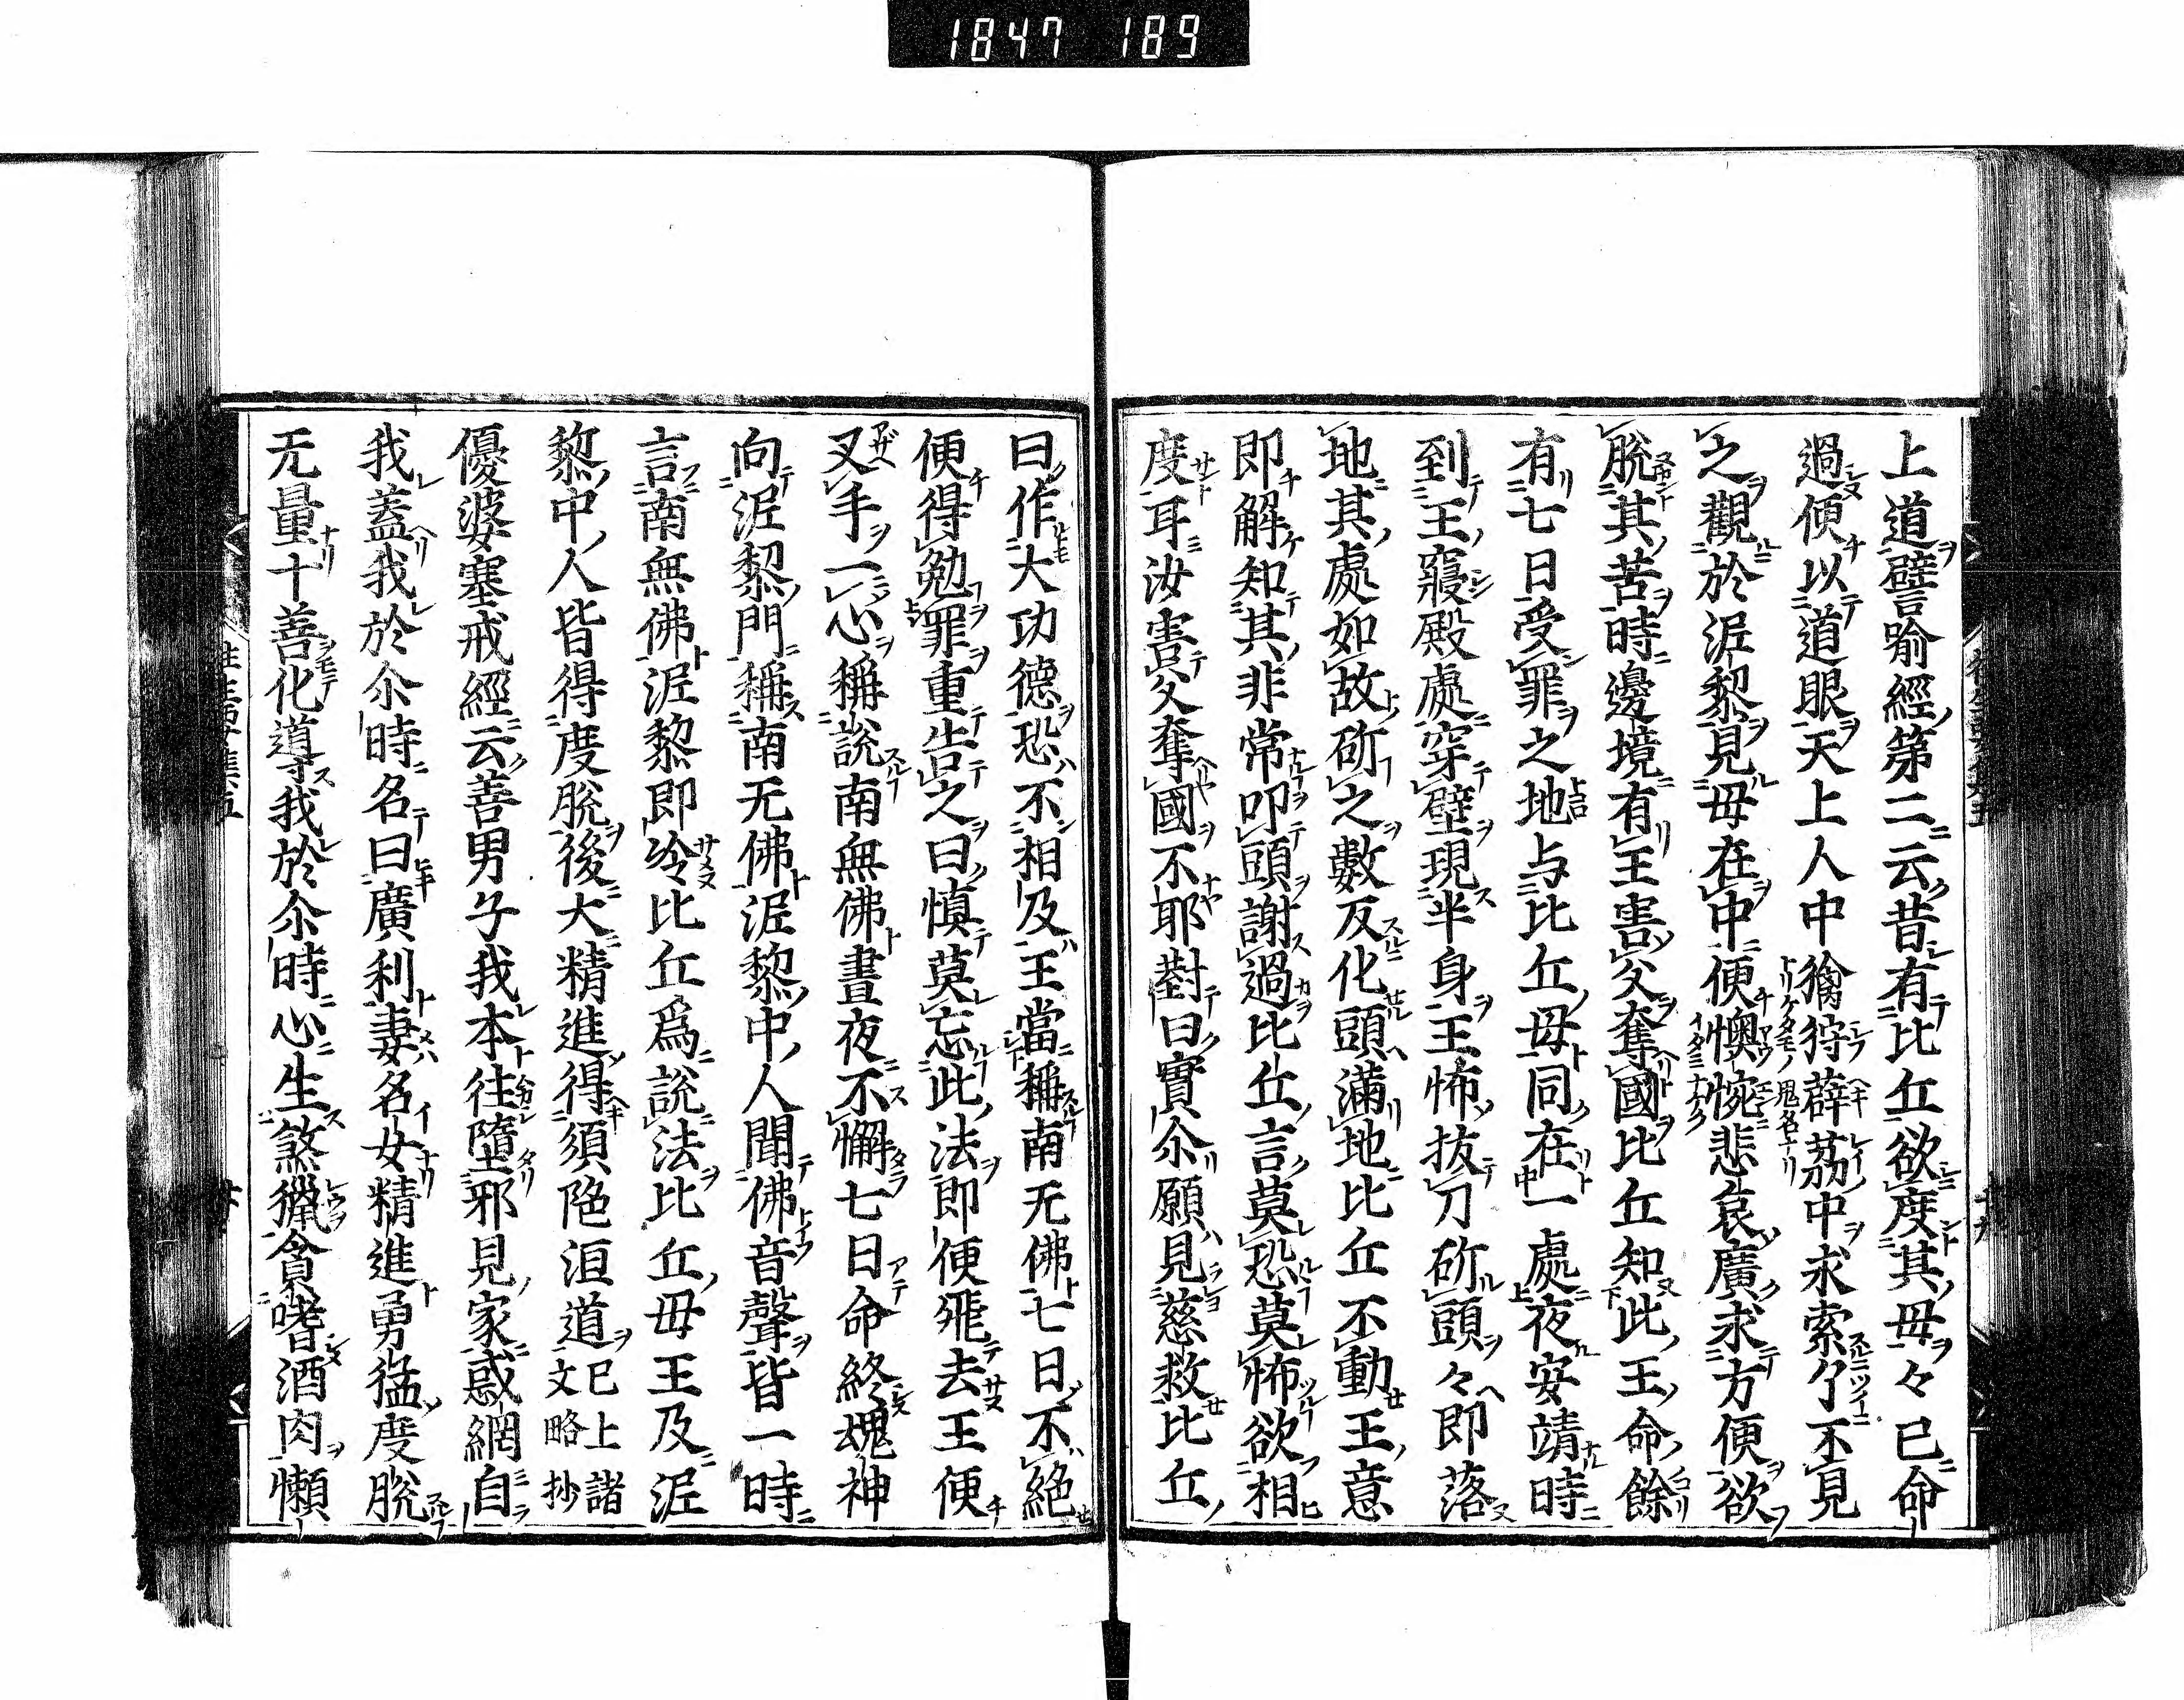 1847 189
上道譬喻經第二云昔有比丘欲度其母々已命
過便以道眼天上人中禽狩薜茘中求索了不見
之觀於泥黎見母在中便懊惋悲哀廣求方便欲
脫其苦時邊境有王害父奪國比丘知此王命餘
有七日受罪之地与比丘母同在一處夜安靖時
到王寢殿處穿壁現半身王怖拔刀斫頭々即落
地其處如故斫之數反化頭滿地比丘不動王意
即解知其非常叩頭謝過比丘言莫恐莫怖欲相
度耳汝害父奪國不耶對曰實尒願見慈救比丘
曰作大功德恐不相及王當稱南无佛七日不絕
便得勉罪重告之曰慎莫忘此法即便飛去王便
叉手一心稱說南無佛晝夜不懈七日命終魂神
向泥黎門稱南无佛泥黎中人聞佛音聲皆一時
言南無佛泥黎即冷比丘爲說法比丘母王及泥
黎中人皆得度脫後大精進得須陀洹道已上諸文略抄
優婆塞戒經云善男子我本往墮邪見家惑網自
我蓋我於尒時名曰廣利妻名女精進勇猛度脫
无量十善化導我於尒時心生煞獵貪嗜酒肉懶